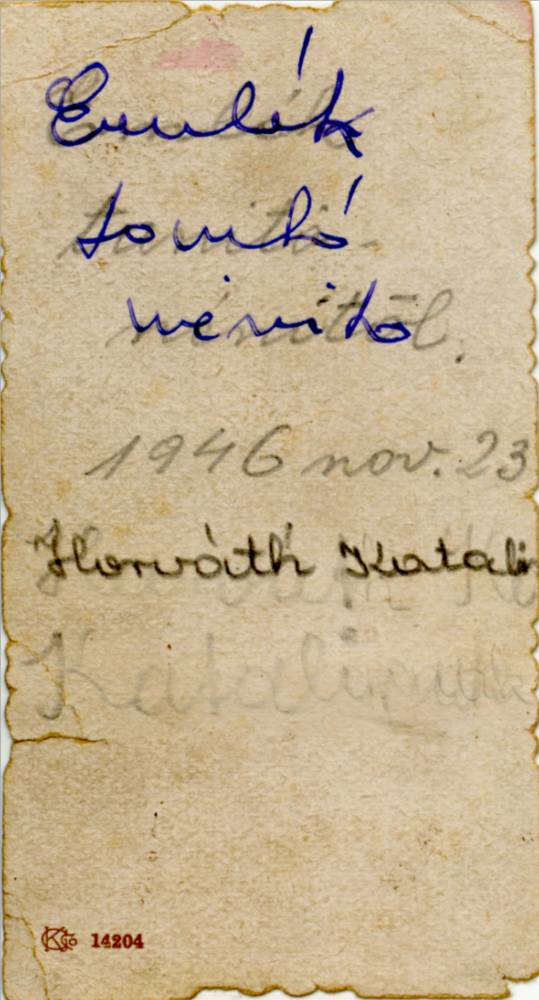 Emlék
tanító
nénitől.
1946 nov. 23
Horváth Katalin
Katalinnak
14204